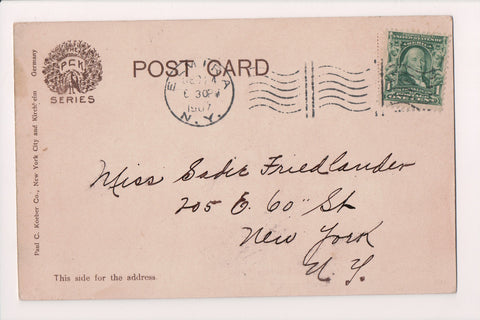 PCK
SERIES
POST CARD
ELMIRA
6 30 PM
1907
N.Y.
1
ONE CENT
Miss Sadie Friedlander
205 E. 60" St
New York
N. Y.
This side for the address.
Paul C. Koeber Co., New York City and Kirchheim Germany